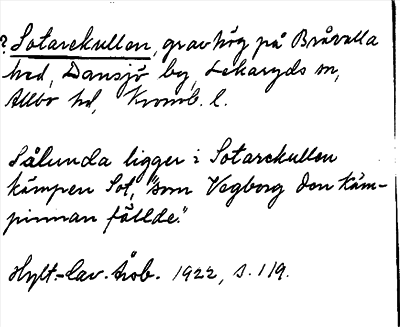 ? Sotarekullen, gravhög på Bråvalla
hed, Dansjö by, Lekaryds sn,
Allbo hd, Kronob. l.
Sålunda ligger i Sotarekullen
kämpen Sot, "som Vegborg den käm-
pinnan fällde."
Hylt.-Cav. årsb. 1922, s. 119.